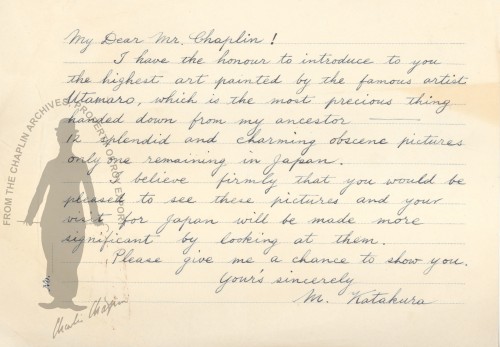 My Dear Mr. Chaplin !
I have the honour to introduce to you
the highest art painted by the famous artist
Utamaro, which is the most precious thing
handed down from my ancestor ———
12 splendid and charming obscene pictures
only one remaining in Japan.
I believe firmly that you would be
pleased to see these pictures and your
visit for Japan will be made more
significant by looking at them.
Please give me a chance to show you.
Your's sincerely
M. Katakura
FROM THE CHAPLIN ARCHIVES PROPERTY OF ROY EXPORT
Charlie Chaplin